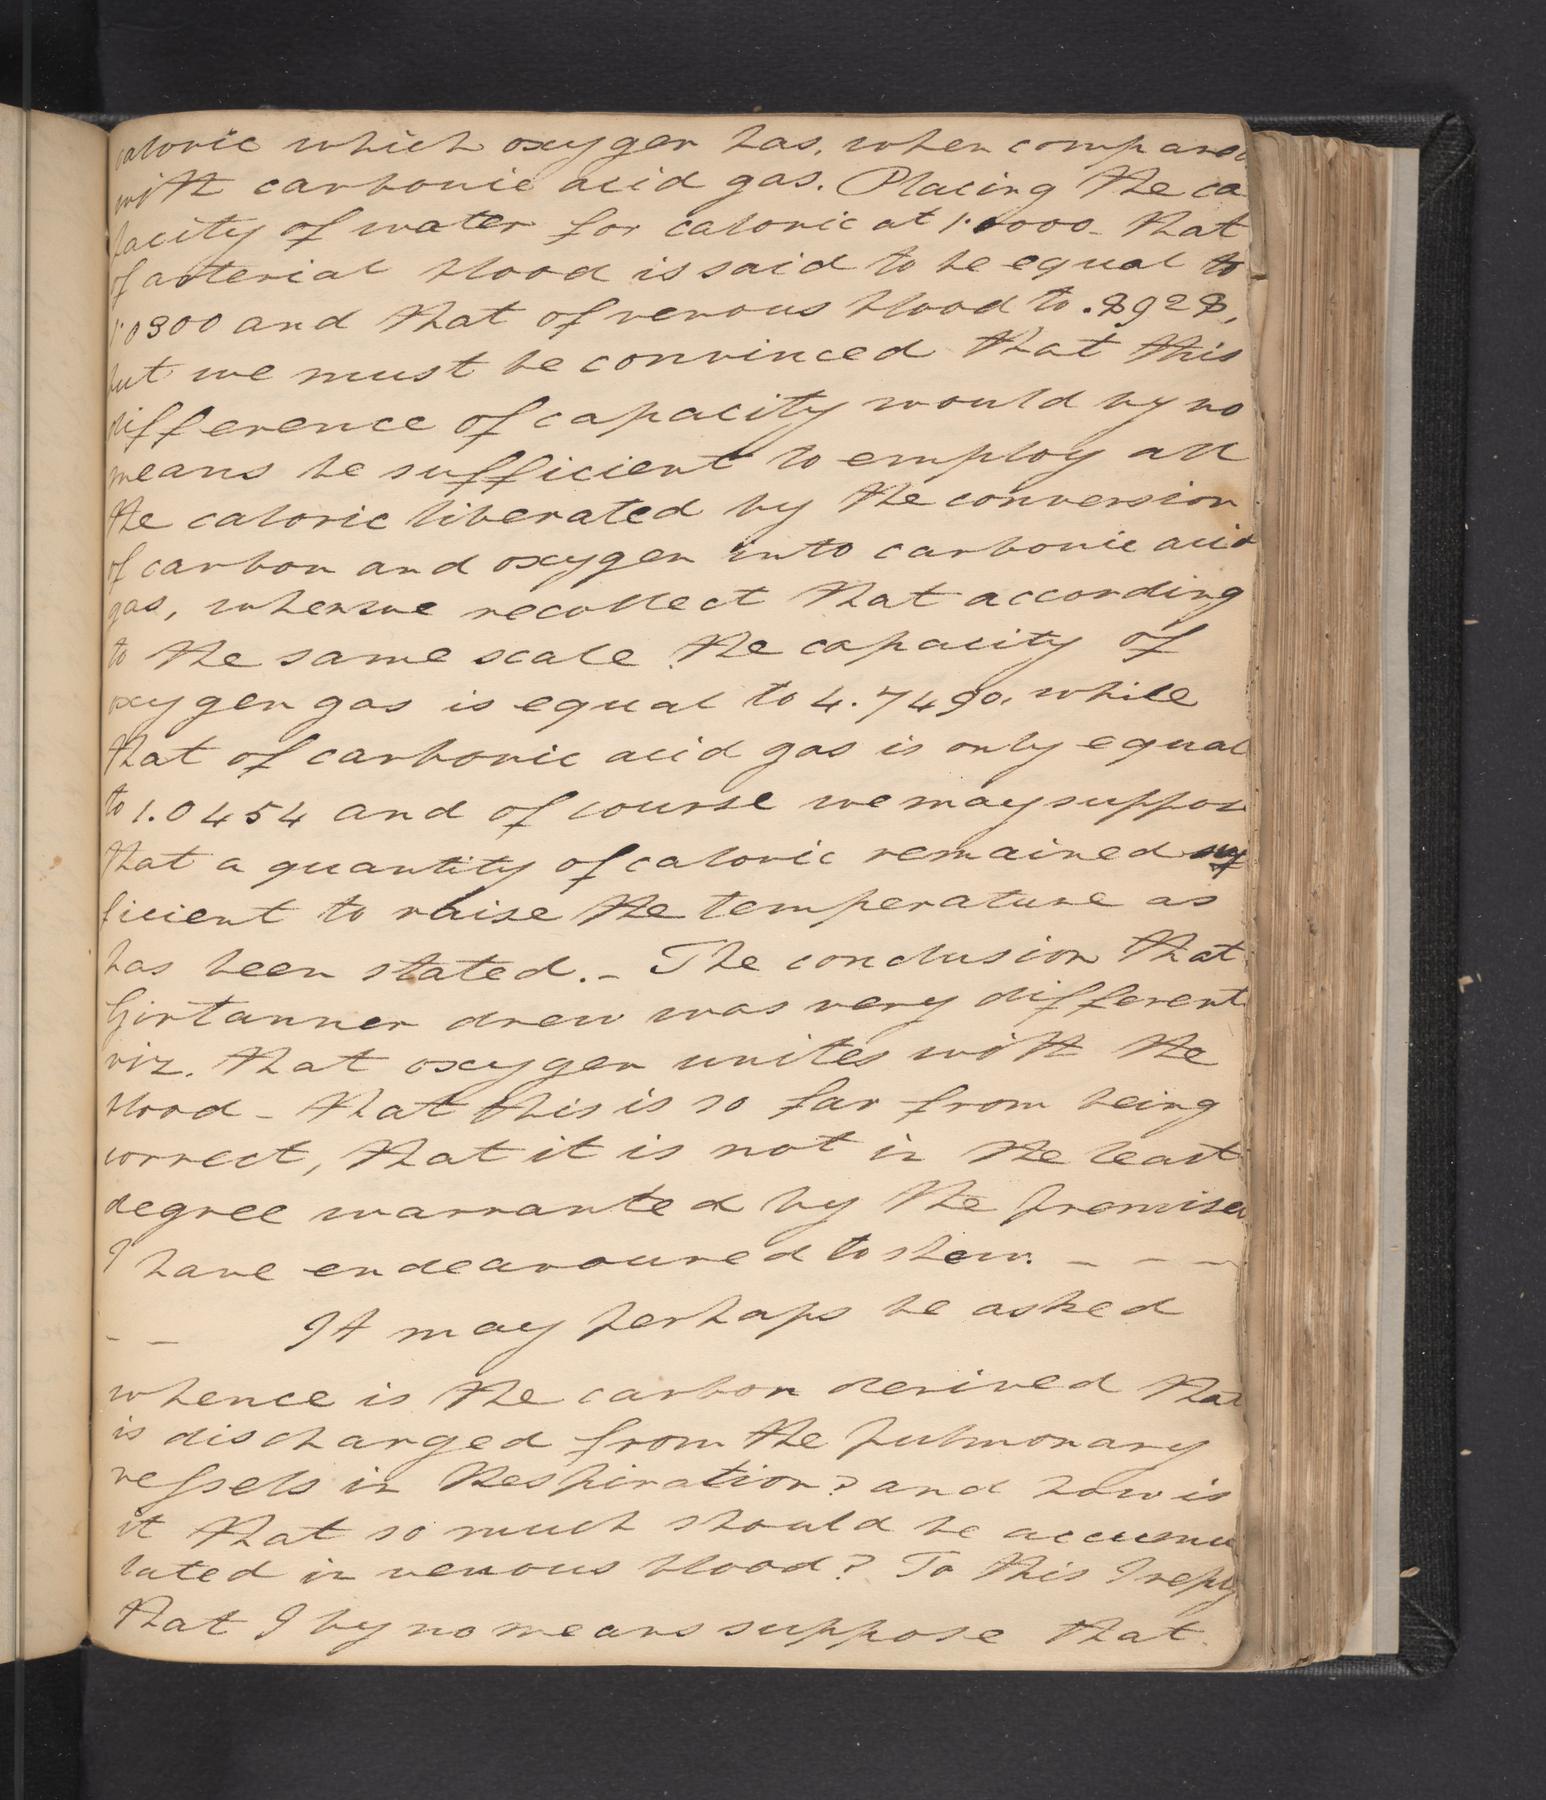 caloric which oxygen has, when compared
with carbonic acid gas. Placing the ca
pacity of water for caloric at 1.0000. that
of arterial blood is said to be equal to
1.0300 and that of venous blood to .8928,
but we must be convinced that this
difference of capacity would by no
means be sufficient to employ all
the caloric liberated by the conversion
of carbon and oxygen into carbonic acid
gas, when we recollect that according
to the same scale the capacity of
oxygen gas is equal to 4.7490. while
that of carbonic acid gas is only equal
to 1.0454 and of course we may suppose
that a quantity of caloric remained suf
ficient to raise the temperature as
has been stated. – The conclusion that
Girtanner drew was very different
viz. that oxygen unites with the
blood – that this is so far from being
correct, that it is not in the least
degree warranted by the premises
I have endeavoured to shew. – – –
– – It may perhaps be asked
whence is the carbon derived that
is discharged from the pulmonary
vessels in Respiration? and how is
it that so much should be accumu
lated in venous blood? To this I reply
that I by no means suppose that